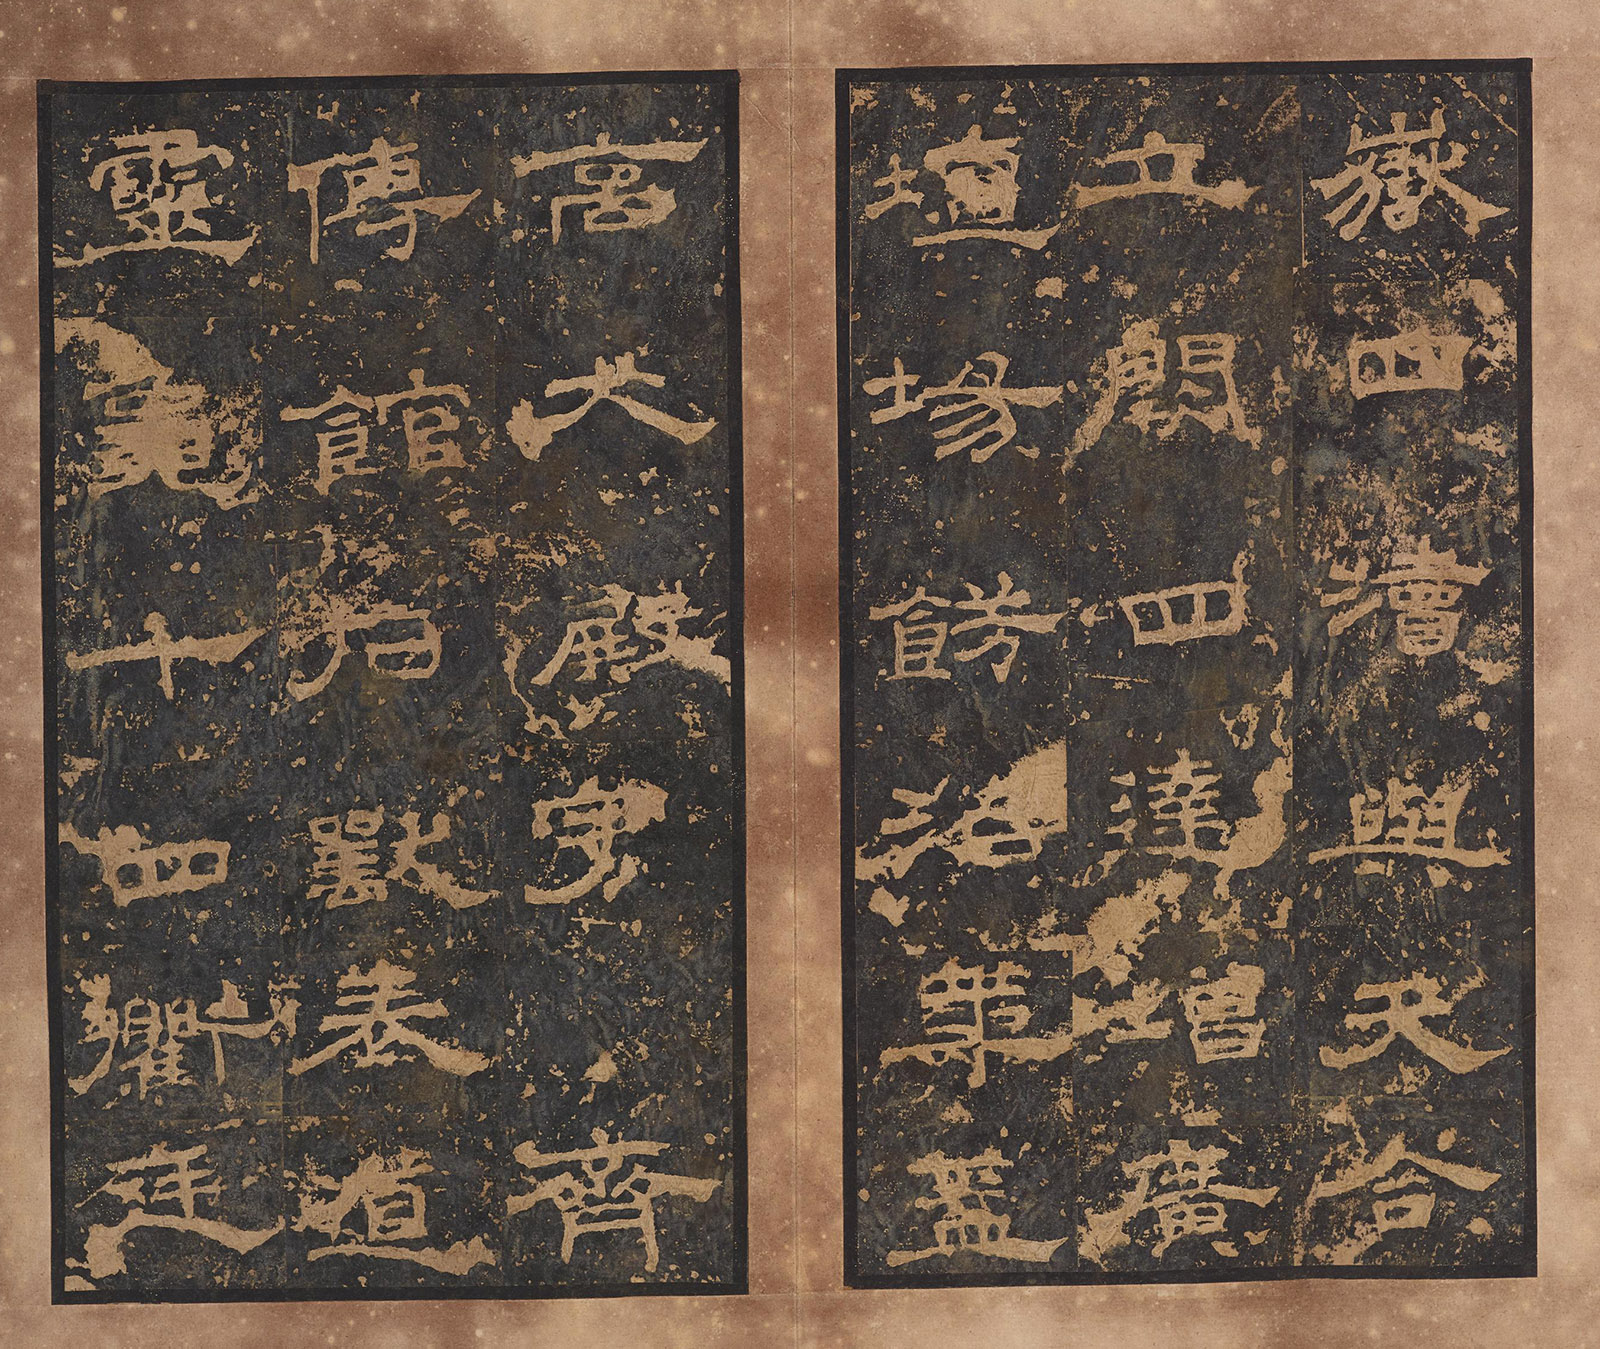 嶽四瀆與天合
立闕四達增廣
壇場飭治華蓋
高大殿宇齊
傳館石獸表道
靈龜十四衢廷